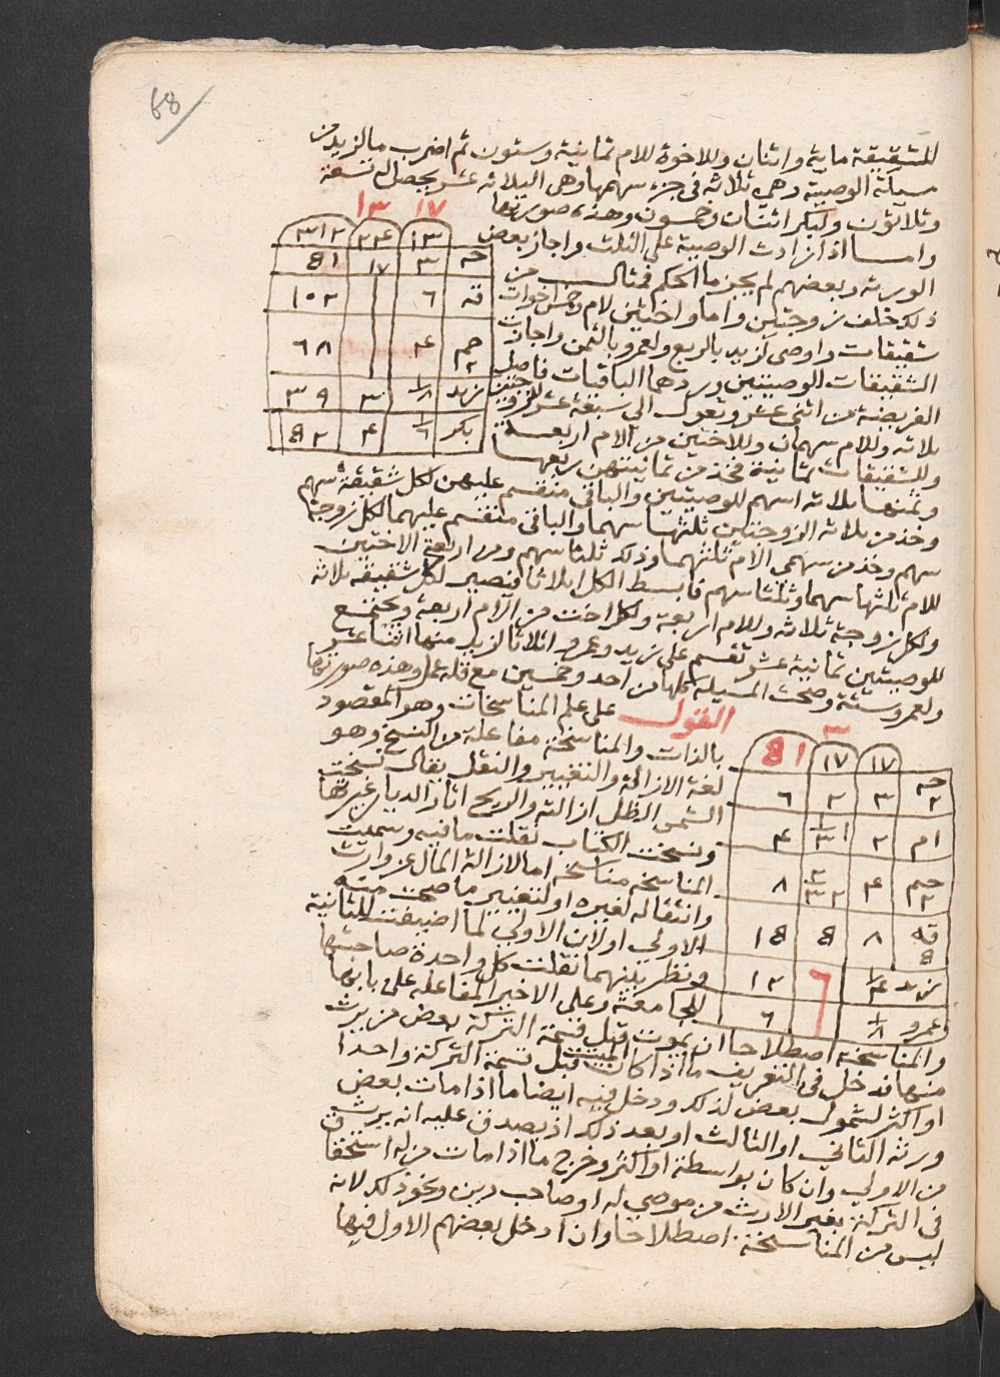 68
للشقيقة ماية واثنان وللاخوة للام ثمانية وستون ثم اضرب ما لزيد من
مسئلة الوصية وهي ثلاثه في جزء سهمها وهي الثلاثه عشر يحصل له تسعة
وثلاثون ولبكر اثنان وخمسون وهذه صورتها
١٧ ١٣
وامـــا اذا زادت الوصية على الثلث واجاز بعض
الورثه وبعضهم لم يجز ما الحكم فمثالـــه من
ذلك خلف زوجتين واما واختين لام وخمس اخوات
شقيقات واوصى لزيد بالربع ولعمرو بالثمن واجازت
الشقيقات الوصيتين وردهما الباقيات فاصل
الفريضة من اثني عشر وتعول الى سبعة عشر للزوجتين
ثلاثه وللام سهمان وللاختين من الام اربعـــة
وللشقيقات ثمانية فخذ من ثمانيتهن ربعهـا
وثمنها ثلاثه اسهم للوصيتين والباقي منقسم عليهن لكل شقيقة سهم
وخذ من ثلاثه الزوجتين ثلثها سهما والباقي منقسم عليهما لكل زوجة
سهم وخذ من سهمي الام ثلثهما وذلك ثلثا سهم ومن اربعة الاختين
للام ثلثها سهما وثلث سهم فابسط الكل اثلاثا فتصير لكل شقيقه ثلاثه
ولكل زوجة ثلاثه وللام اربعة ولكل اخت من الام اربعة ويجتمع
للوصيتين ثمانية عشر تقسم على زيد وعمرو اثلاثا لزيد منها اثنا عشر
ولعمرو ستة وصحت المسيلة كلها من احد وخمسين مع قلة عمل وهذه صورتها
القول على علم المناسخات وهو المقصود
بالذات والمناسخة مفاعلة من النسخ وهو
لغة الازالة والتغيير والنقل يقال نسخت
الشمس الظل ازالته والريح اثار الديار غيرتها
ونسخت الكتاب نقلت ما فيه وسميت
المناسخه مناسخة اما لازالة المال عن وارث
وانتقاله لغيره او لتغيير ما صحت منه
الاولى او لان الاولى لما اضيفت للثانية
ونظر بينهما نقلت كل واحدة صاحبتها
للجامعة وعلى الاخير المفاعله على بابها
والمناسخة اصطلاحا ان يموت قبل قسمة التركة بعض من يرث
منها فدخل في التعريف ما اذا كان الميت قبل قسمة التركة واحدا
او اكثر لشمول بعض لذلك ودخل فيه ايضا ما اذا مات بعض
ورثة الثاني او الثالث او بعد ذلك اذ يصدق عليه انه يرث
من الاولى وان كان بواسطة او اكثر وخرج ما اذا مات من له استحقاق
في التركة بغير الارث من موصي له او صاحب دين ونحو ذلك لانه
ليس من المناسخة اصطلاحا وان ادخل بعضهم الاول فيها
١٣ ٢٤ ٣١٢
جه ٣ ١٧ ٥١
قه ٦ ١٠٢
جم ٢ ٤ ٦٨
زيد ١/٨ ٣ ٣٩
بكر ١/٦ ٤ ٥٢
٣
١٧ ١٧ ٥١
جه ٢ ٣ ٢ ٦
ام ٢ ١ ١/٣ ٤
جم ٢ ٤ ٢ ٢/٣ ٨
قه ٥ ٨ ٥ ١٥
زيد ١/٤ ٦ ١٢
عمرو ١/٨ ٦